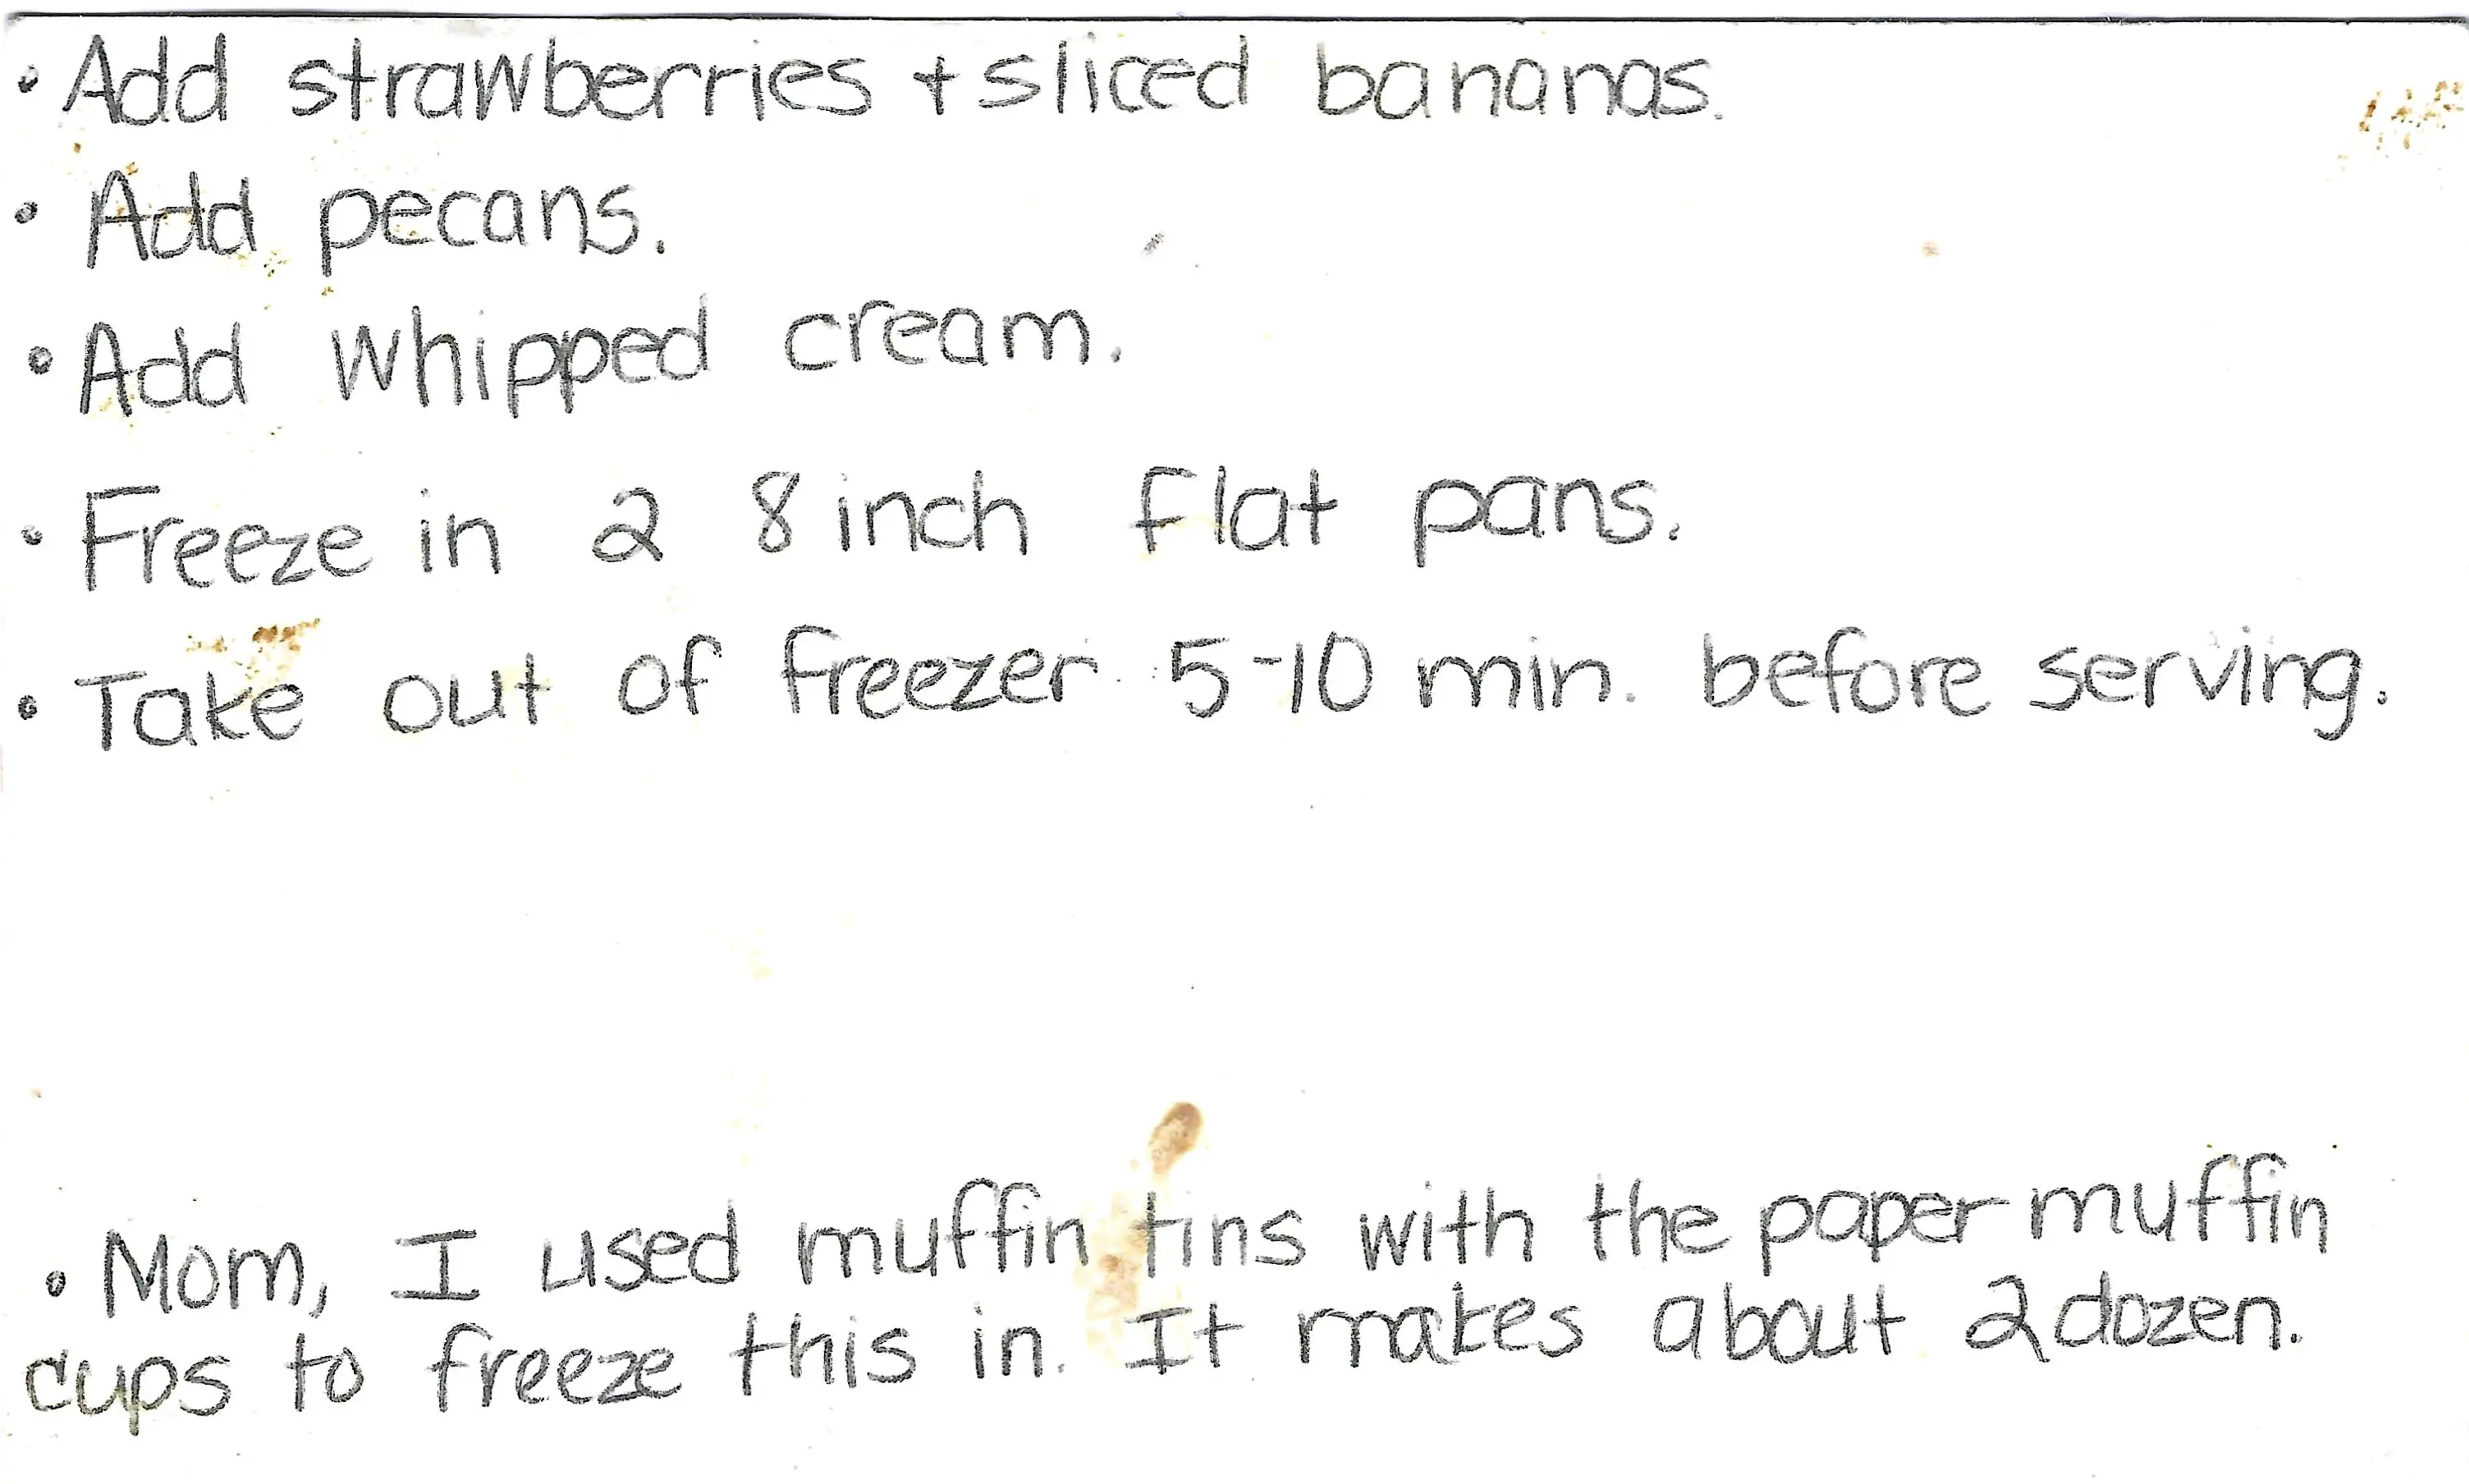 • Add strawberries + sliced bananas.
• Add pecans.
• Add whipped cream.
• Freeze in 2 8 inch flat pans.
• Take out of freezer 5-10 min. before serving.
• Mom, I used muffin tins with the paper muffin
cups to freeze this in. It makes about 2 dozen.